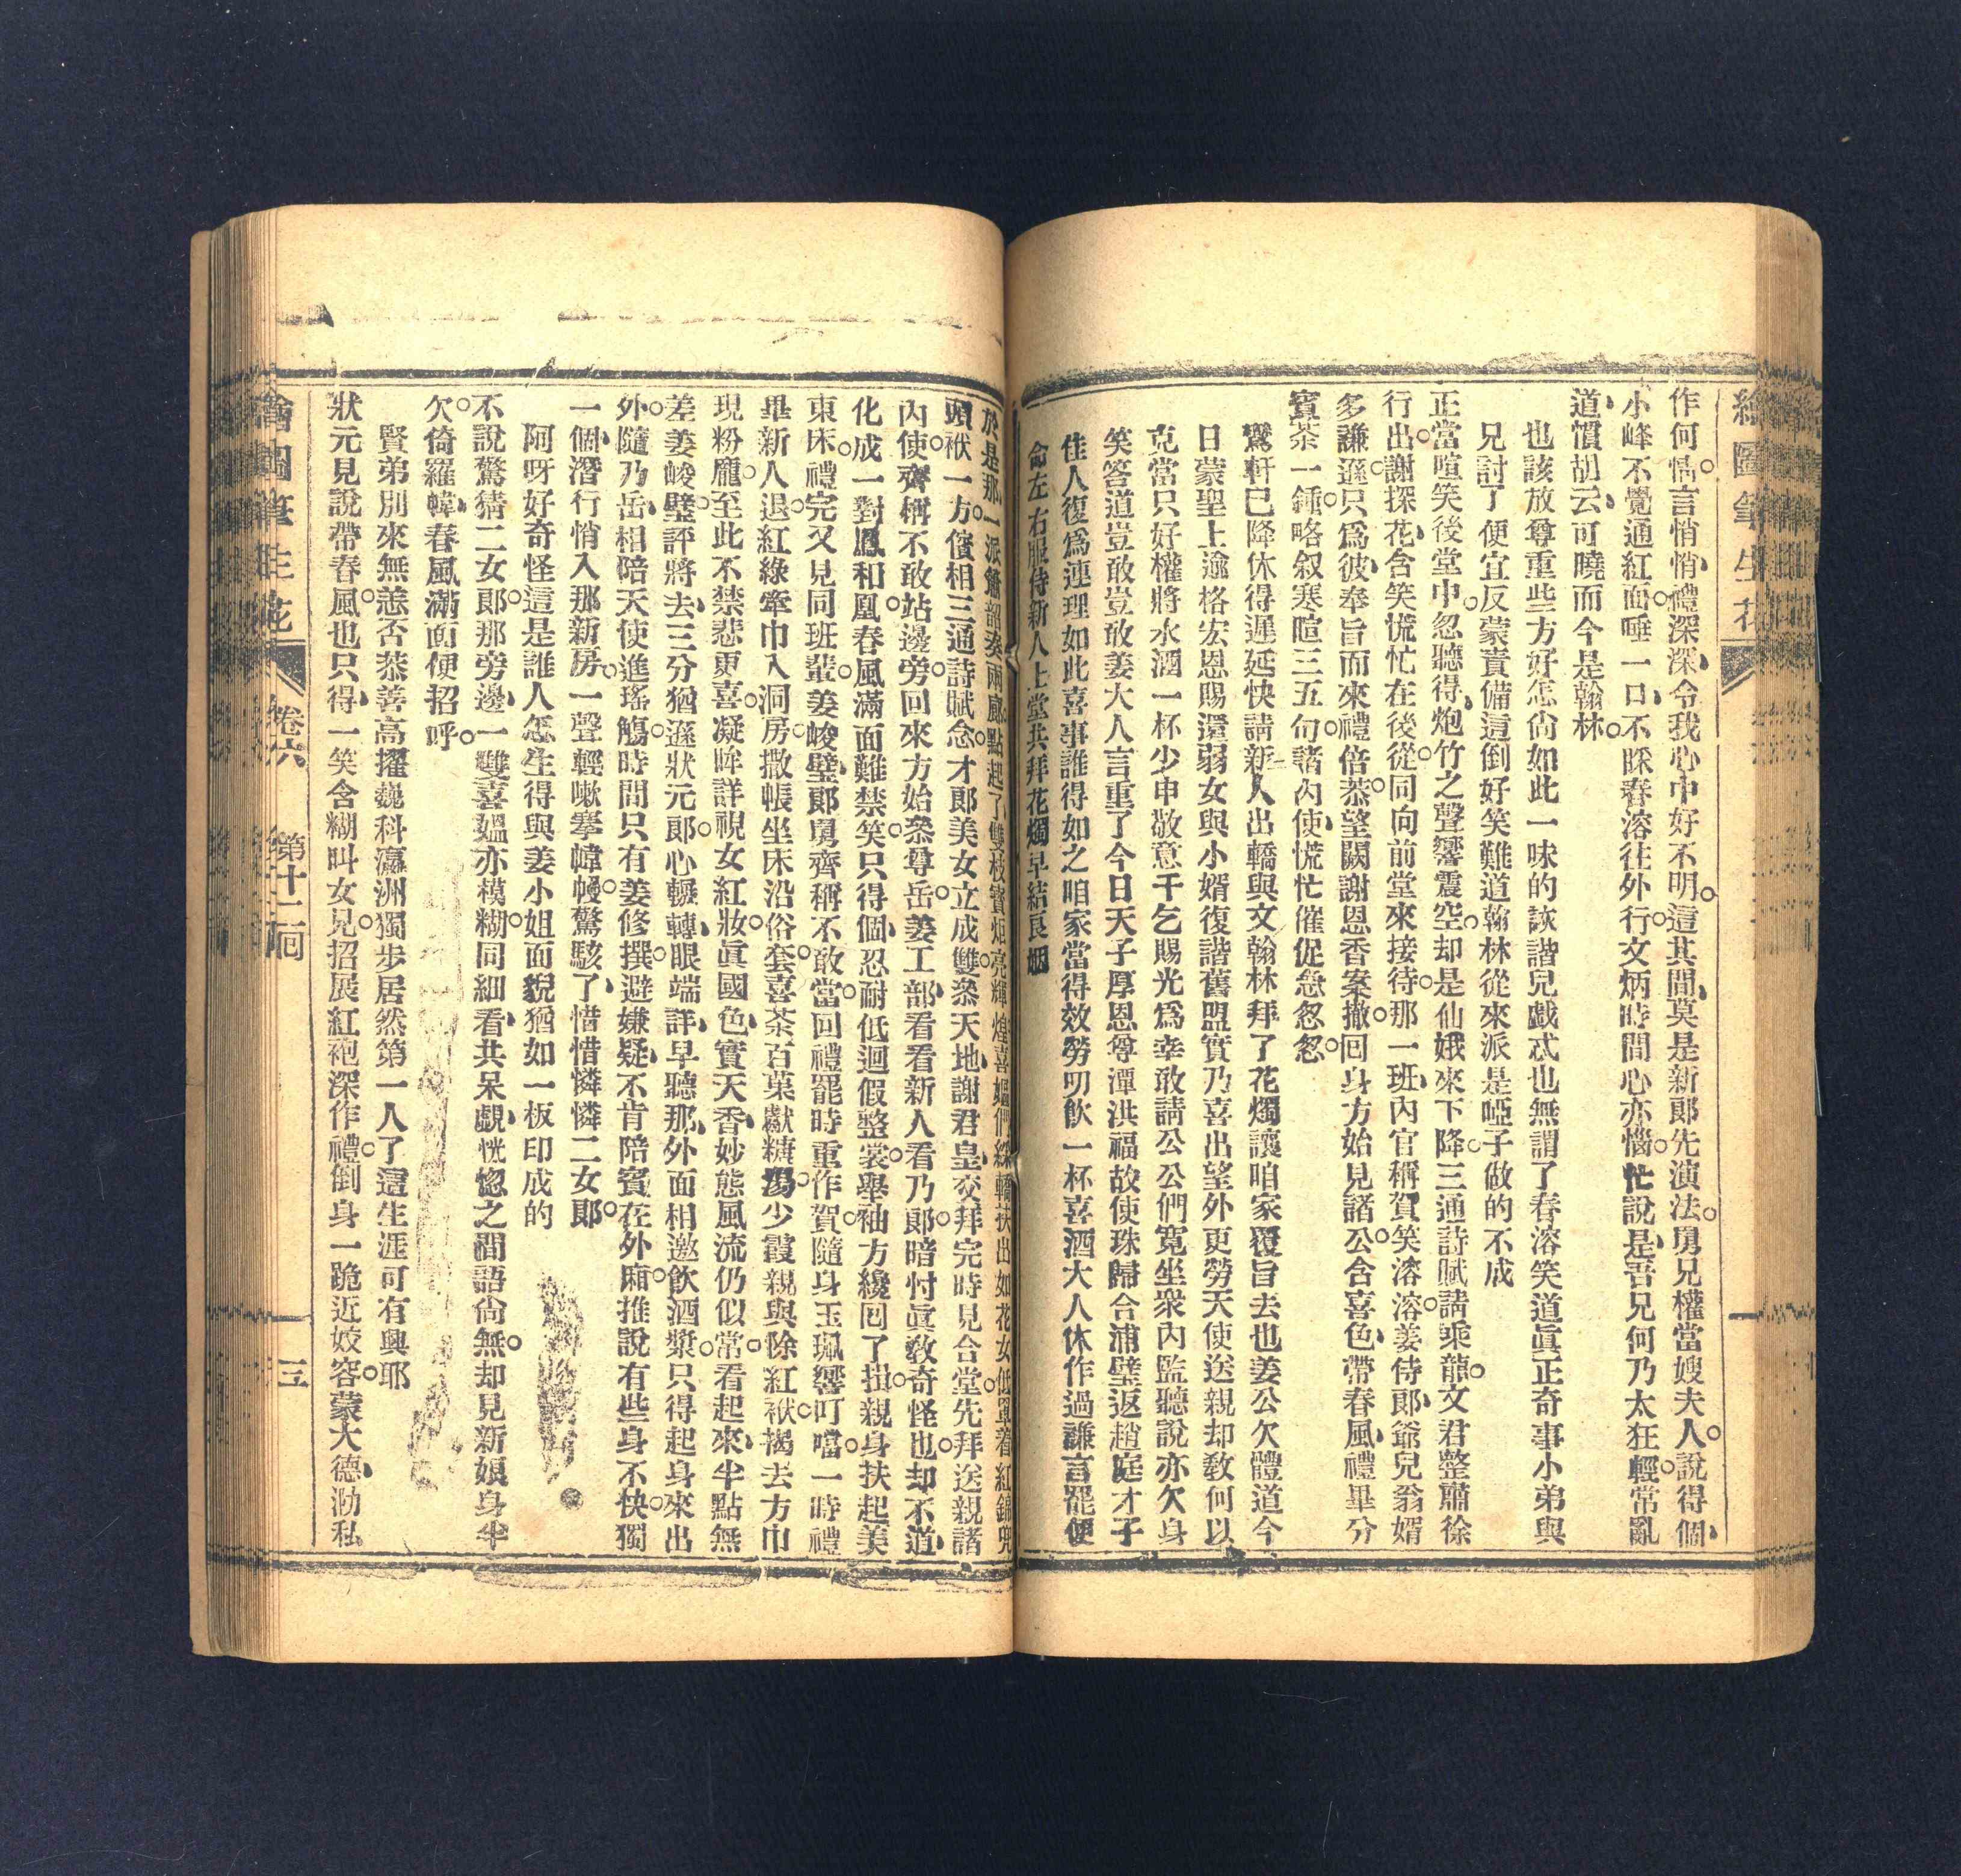 繪圖筆生花
作何喁言悄悄禮深深令我心中好不明這其間莫是新郎先演法舅兄權當嫂夫人說得個
小峰不覺通紅面唾一口不睬春溶往外行文炳時間心亦惱忙說是吾兄何乃太狂輕常亂
道慣胡云可曉而今是翰林
也該放尊重些方好怎尙如此一味的詼諧兒戲忒也無謂了春溶笑道眞正奇事小弟與
兄討了便宜反蒙責備這倒好笑難道翰林從來派是啞子做的不成
正當喧笑後堂中忽聽得炮竹之聲響震空却是仙娥來下降三通詩賦請乘龍文君整肅徐
行出謝探花含笑慌忙在後從同向前堂來接待那一班內官稱賀笑溶溶姜侍郞爺兒翁婿
多謙遜只爲彼奉旨而來禮倍恭望闕謝恩香案撤回身方始見諸公含喜色帶春風禮畢分
賓茶一鍾略叙寒暄三五句諸內使慌忙催促急忽忽
鸞軒已降休得遲延快請新人出轎與文翰林拜了花燭讓咱家覆旨去也姜公欠體道今
日蒙聖上逾格宏恩賜還弱女與小婿復諧舊盟實乃喜出望外更勞天使送親却敎何以
克當只好權將水酒一杯少申敬意千乞賜光爲幸敢請公公們寬坐衆內監聽說亦欠身
笑答道豈敢豈敢姜大人言重了今日天子厚恩尊潭洪福故使珠歸合浦璧返趙庭才子
佳人復爲連理如此喜事誰得如之咱家當得效勞叨飲一杯喜酒大人休作過謙言罷便
命左右服侍新人上堂共拜花燭早結良姻
於是那一派簫韶奏兩廊點起了雙枝寶炬亮輝煌喜嫗們綵轎扶出如花女低罩着紅錦兜
頭袱一方儐相三通詩賦念才郞美女立成雙叅天地謝君皇交拜完時見合堂先拜送親諸
內使齊稱不敢站邊旁回來方始叅尊岳姜工部看看新人看乃郞暗忖眞敎奇怪也却不道
化成一對鳳和凰春風滿面難禁笑只得個忍耐低迴假整裳舉袖方纔回了揖親身扶起美
東床禮完又見同班輩姜峻璧郞舅齊稱不敢當回禮罷時重作賀隨身玉珮響叮噹一時禮
畢新人退紅綠牽巾入洞房撒帳坐床沿俗套喜茶百菓獻糖湯少霞親與除紅袱揭去方巾
現粉龐至此不禁悲更喜凝眸詳視女紅妝眞國色實天香妙態風流仍似常看起來半點無
差姜峻璧評將去三分猶遜狀元郞心輾轉眼端詳早聽那外面相邀飲酒漿只得起身來出
外隨乃岳相陪天使進瑤觴時間只有姜修撰避嫌疑不肯陪賓在外廂推說有些身不快獨
一個潛行悄入那新房一聲輕嗽搴幃幔驚駭了惜惜憐憐二女郞
阿呀好奇怪這是誰人怎生得與姜小姐面貌猶如一板印成的
不說驚猜二女郞那旁邊一雙喜嫗亦模糊同細看共呆覷恍惚之間語尙無却見新娘身半
欠倚羅幃春風滿面便招呼
賢弟別來無恙否恭善高擢巍科瀛洲獨步居然第一人了這生涯可有興耶
狀元見說帶春風也只得一笑含糊叫女兄招展紅袍深作禮倒身一跪近姣容蒙大德泐私
繪圖筆生花
卷六
第廿二回
三